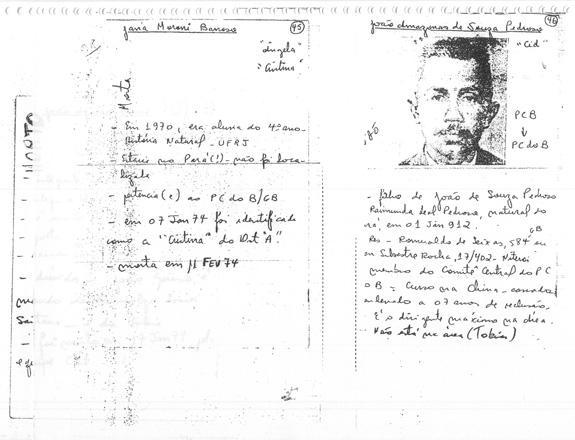 Jana Moroni Barroso
45
"Angela"
"Cristina"
Morta
- Em 1970, era aluna do 4º ano -
História Natural - UFRJ
no Pará(!) - não foi loca-
lizada
- pertencia(e) ao PC do B/GB
- em 07 Jan 74 foi identificada
como a "Cristina" do Dst "A"
- morta em 11 FEV 74
João Amazonas de Souza Pedroso
46
"Cid"
PCB
PC do B
- filho de João de Souza Pedroso
Raimunda Leal Pedroso, natural do
em 01 Jan 912.
GB
Res - Romualdo de Seixas, 584 ou
Silvestre Rocha, 17/402 - Niterói
membro do Comitê Central do PC
do B - Curso na China -
a 07 anos de reclusão.
É o dirigente máximo na área.
Não está na área (Tobias)